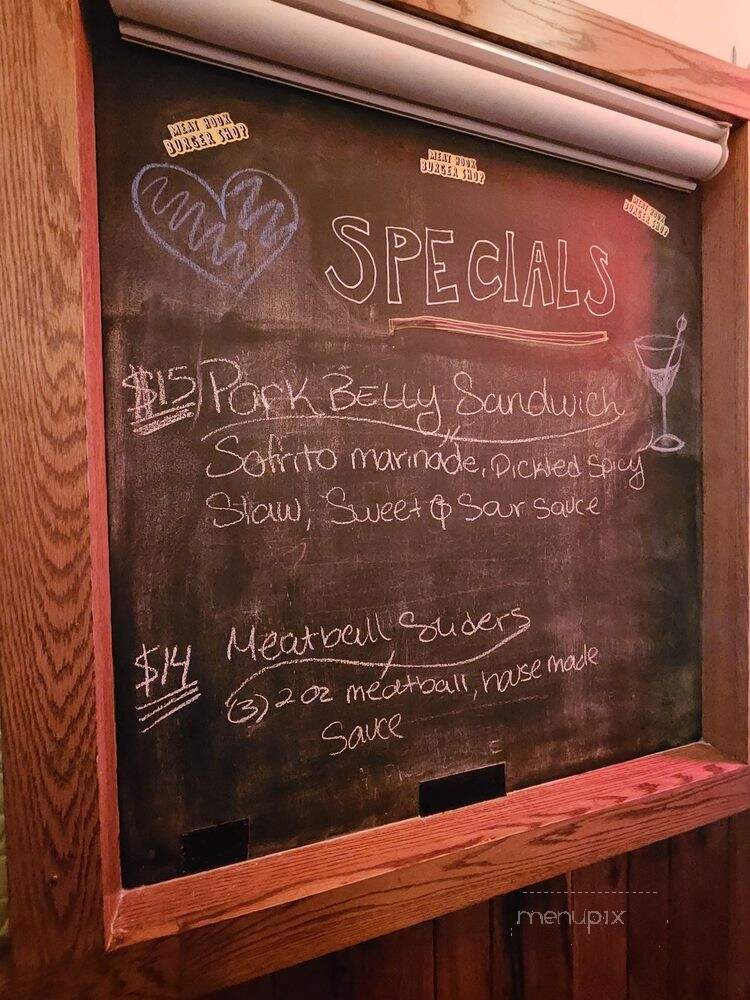 MEAT HOOK
BURGER SHOP
MEAT HOOK
BURGER SHOP
MEAT HOOK
BURGER SHOP
SPECIALS
$15 Pork BELLY Sandwich
Sofrito marinade, Pickled Spicy
Slaw, Sweet & Sour Sauce
$14 Meatball Sliders
(3) 2 oz meatball, house made
Sauce
menupix